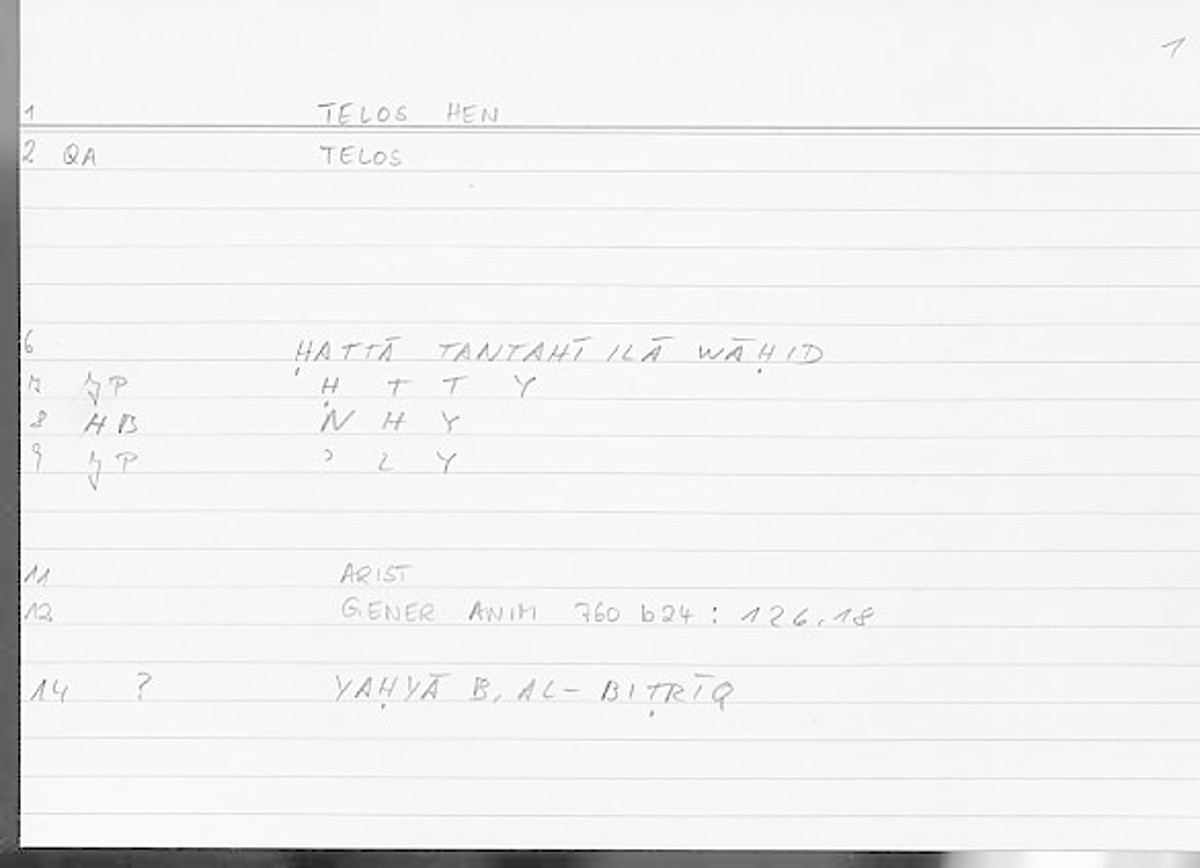 1
1 TELOS HEN
2 QA TELOS
6 ḤATTĀ TANTAHĪ ILĀ WĀḤID
7 JP Ḥ T T Y
8 HB N H Y
9 JP ʾ L Y
11 ARIST
12 GENER ANIM 760 b24 : 126.18
14 ? YAḤYĀ B. AL-BIṬRĪQ